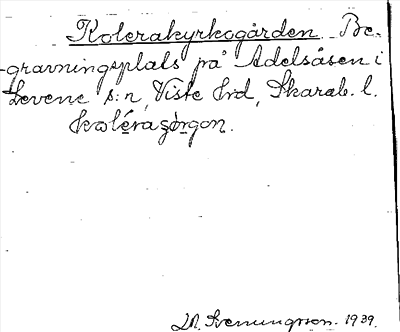 Kolerakyrkogården Be-
gravningsplats på Adelsåsen i
Levene s:n, Viste hrd, Skarab. l.
koléraʂörgon.
Svenungsson. 1939.